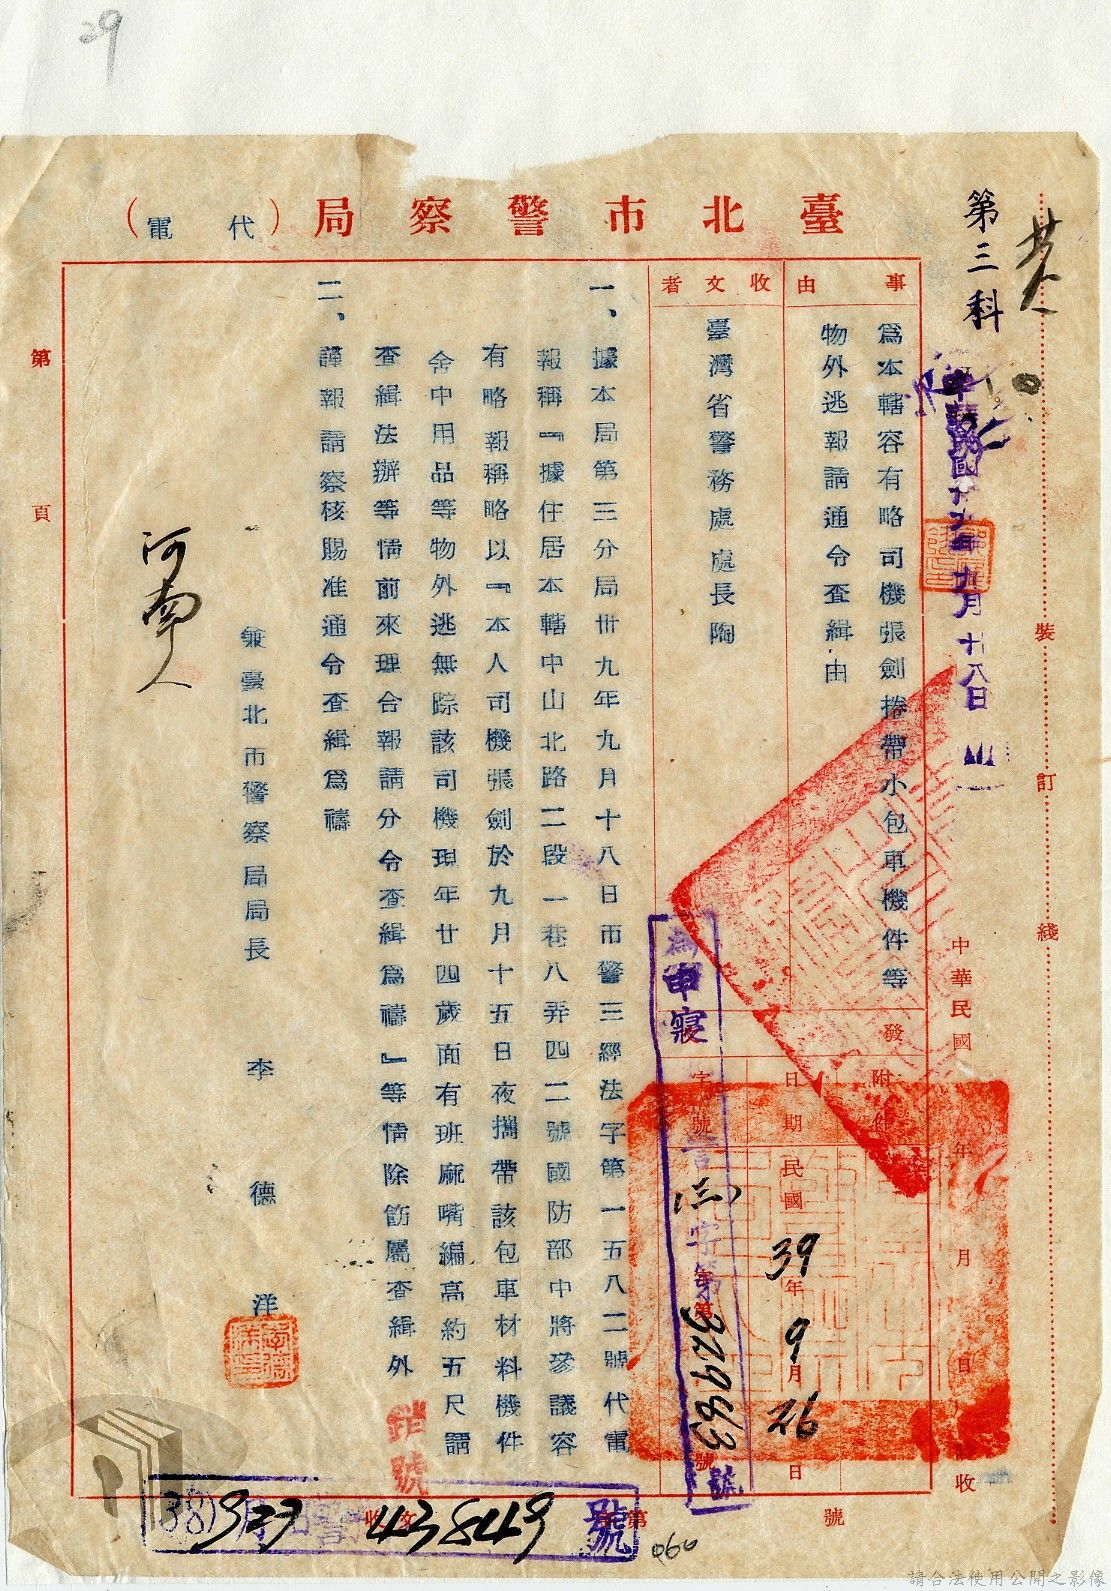 29
臺北市警察局（代電）
第三科
中華民國卅九年九月廿八日
事由
為本轄容有略司機張劍捲帶小包車機件等
物外逃報請通令查緝由
收文者
臺灣省警務處處長陶
發
附件
日期
民國39年9月26日
字號
申寢
字第32983號
一、據本局第三分局卅九年九月十八日市警三經法字第一五八二號代電
報稱『據住居本轄中山北路二段一巷八弄四二號國防部中將參議容
有略報稱略以『本人司機張劍於九月十五日夜攜帶該包車材料機件
仝中用品等物外逃無踪該司機現年廿四歲面有班麻嘴編高約五尺請
查緝法辦等情前來理合報請分令查緝為禱』等情除飭屬查緝外
二、謹報請察核賜准通令查緝為禱
兼臺北市警察局局長　李　德　洋
李德洋印
河南人
銷號
裝訂線
中華民國　年　月　日收
第　頁
收文　第　號
43849號
060
請合法使用公開之影像